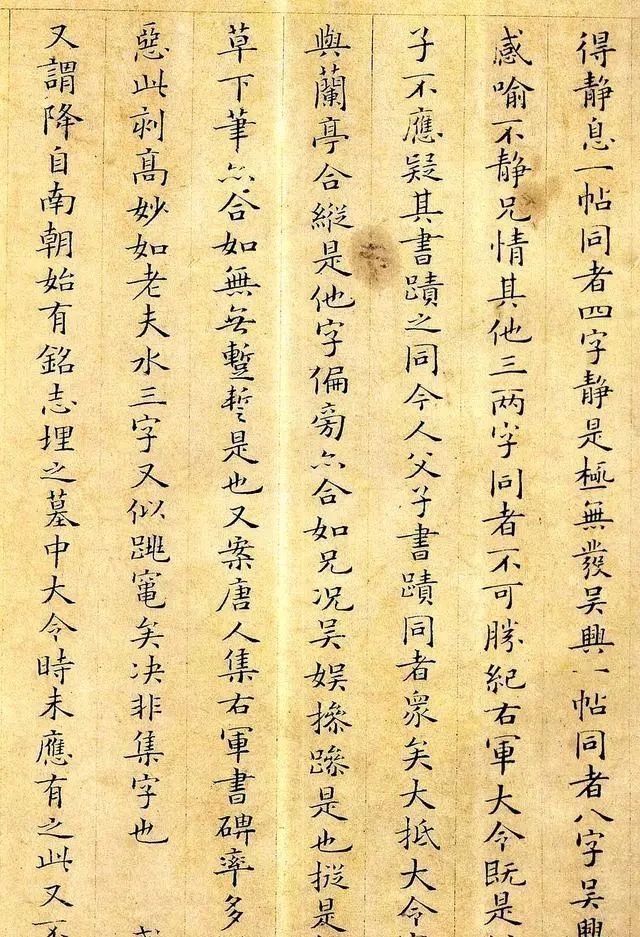 得静息一帖同者四字静是極無發吴興一帖同者八字吴興
感喻不静兄情其他三两字同者不可勝紀右軍大令既是
子不應疑其書蹟之同今人父子書蹟同者衆矣大抵大令
與蘭亭合縱是他字偏旁亦合如兄况吴娱摻蹤是也摐是
草下筆亦合如無無蹔誓是也又案唐人集右軍書碑率多
惡此刻高妙如老夫水三字又似跳竈矣决非集字也
又謂降自南朝始有銘志埋之墓中大令時未應有之此又不